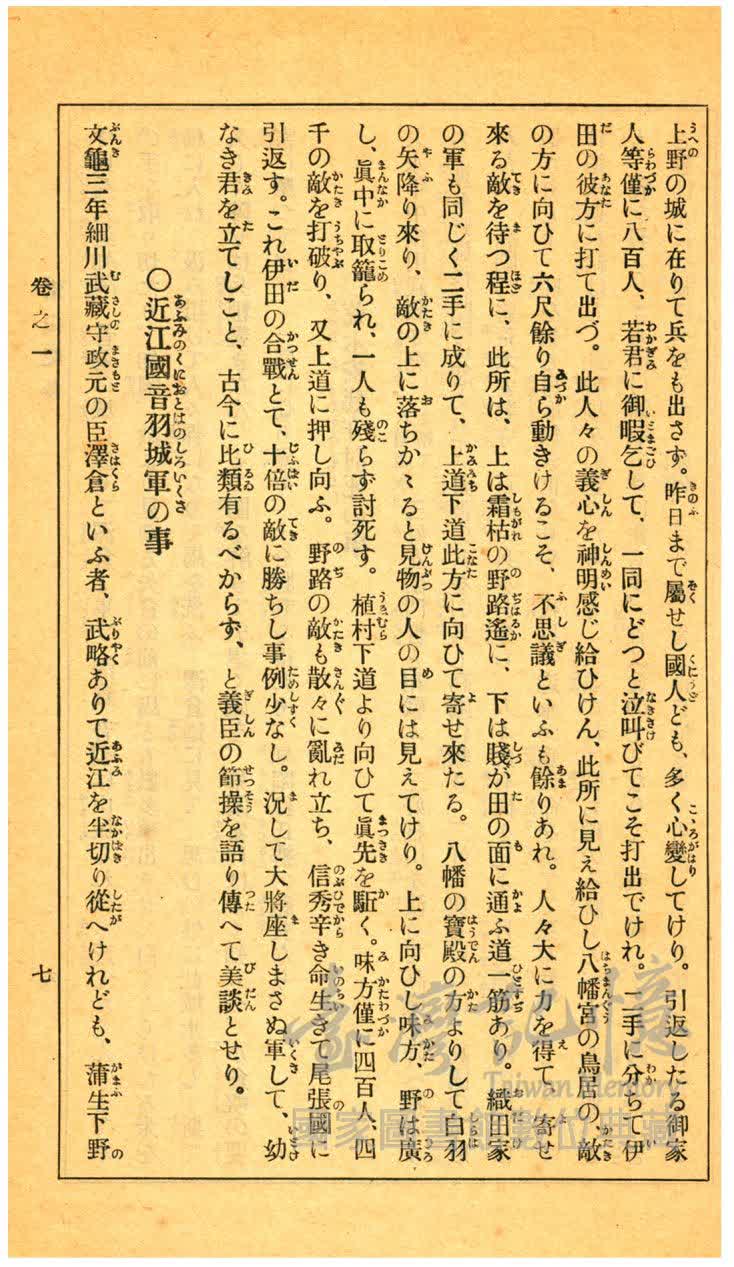 上野の城に在りて兵をも出さず。昨日まで屬せし國人ども、多く心變してけり。引返したる御家
人等僅に八百人、若君に御暇乞して、一同にどつと泣叫びてこそ打出でけれ。二手に分ちて伊
田の彼方に打て出づ。此人々の義心を神明感じ給ひけん、此所に見え給ひし八幡宮の鳥居の、敵
の方に向ひて六尺餘り自ら動きけるこそ、不思議といふも餘りあれ。人々大に力を得て、寄せ
來る敵を待つ程に、此所は、上は霜枯の野路遙に、下は賤が田の面に通ふ道一筋あり。織田家
の軍も同じく二手に成りて、上道下道此方に向ひて寄せ來たる。八幡の寶殿の方よりして白羽
の矢降り來り、敵の上に落ちかゝると見物の人の目には見えてけり。上に向ひし味方、野は廣
し、眞中に取籠られ、一人も殘らず討死す。植村下道より向ひて眞先を駈く。味方僅に四百人、四
千の敵を打破り、又上道に押し向ふ。野路の敵も散々に亂れ立ち、信秀辛き命生きて尾張國に
引返す。これ伊田の合戰とて、十倍の敵に勝ちし事例少なし。況して大將座しまさぬ軍して、幼
なき君を立てしこと、古今に比類有るべからず、と義臣の節操を語り傳へて美談とせり。
○近江國音羽城軍の事
文龜三年細川武藏守政元の臣澤倉といふ者、武略ありて近江を半切り從へけれども、蒲生下野
卷之一
七
臺灣記憶
Taiwan Memory
國家圖書館數位典藏